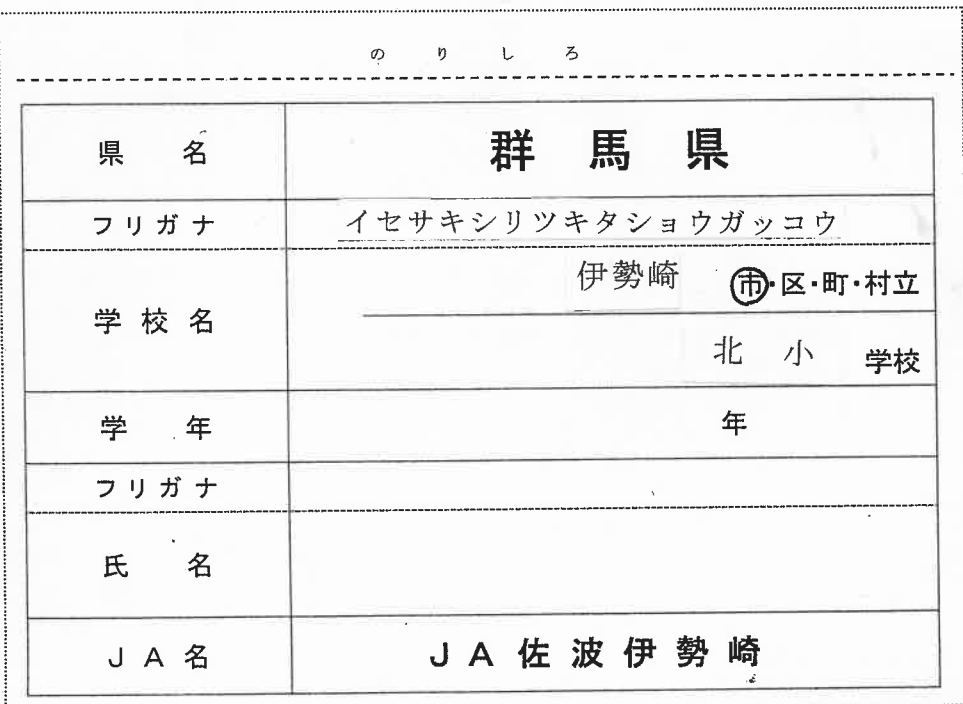 のりしろ
県名 群馬県
フリガナ イセサキシリツキタショウガッコウ
学校名 伊勢崎 市・区・町・村立
北小 学校
学年 年
フリガナ
氏名
JA名 JA佐波伊勢崎